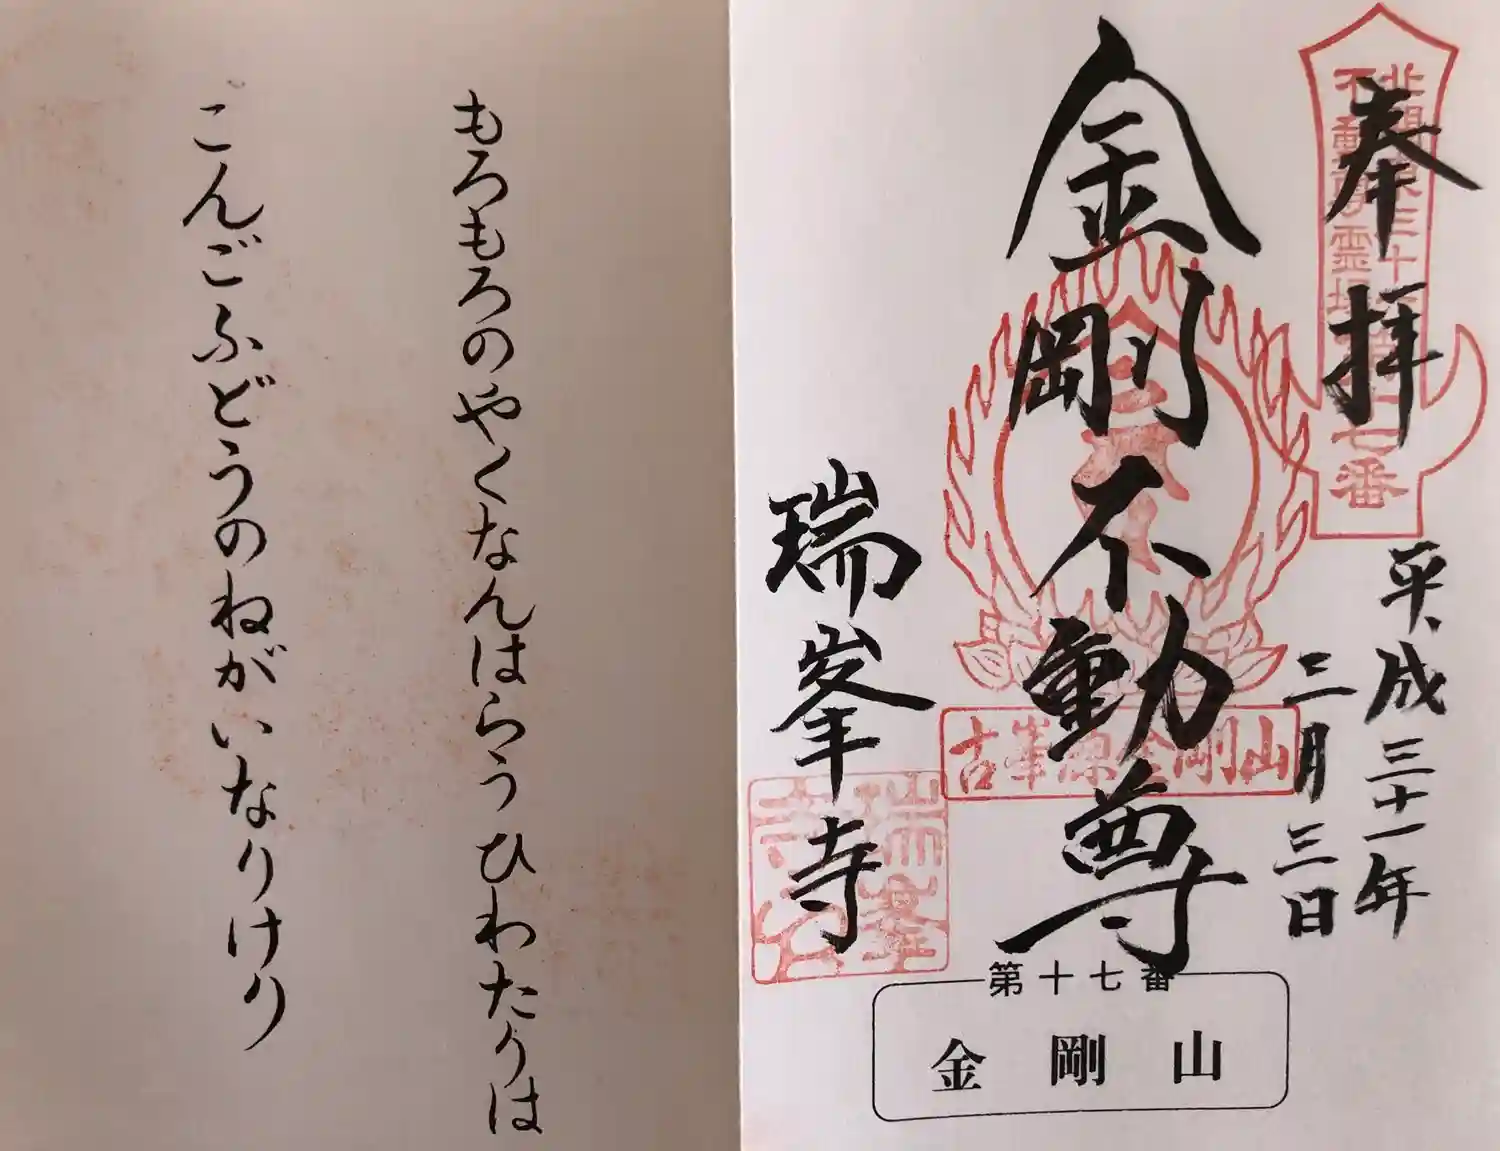 奉拝
北関東三十六
不動尊霊場
十七番
平成三十一年
三月三日
金剛不動尊
古峯源金剛山
瑞峯寺
第十七番
金剛山
もろもろのやくなんはらうひわたりは
こんごふどうのねがいなりけり